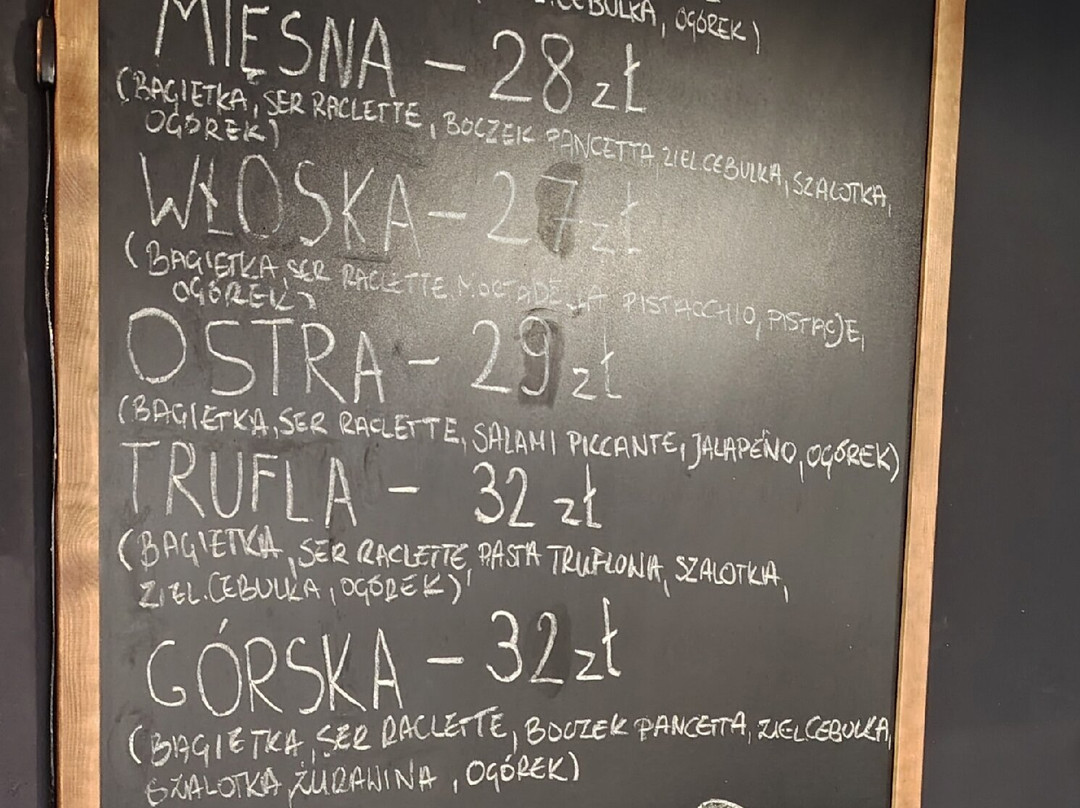 CEBULKA, OGÓREK)
MIĘSNA – 28 zł
(BAGIETKA, SER RACLETTE, BOCZEK PANCETTA ZIEL.CEBULKA, SZALOTKA,
OGÓREK)
WŁOSKA – 27 zł
(BAGIETKA, SER RACLETTE, MORTADELLA PISTACCHIO, PISTACJE,
OGÓREK)
OSTRA – 29 zł
(BAGIETKA, SER RACLETTE, SALAMI PICCANTE, JALAPEÑO, OGÓREK)
TRUFLA – 32 zł
(BAGIETKA, SER RACLETTE, PASTA TRUFLOWA, SZALOTKA,
ZIEL.CEBULKA, OGÓREK)
GÓRSKA – 32 zł
(BAGIETKA, SER RACLETTE, BOCZEK PANCETTA, ZIEL.CEBULKA,
SZALOTKA, ŻURAWINA, OGÓREK)